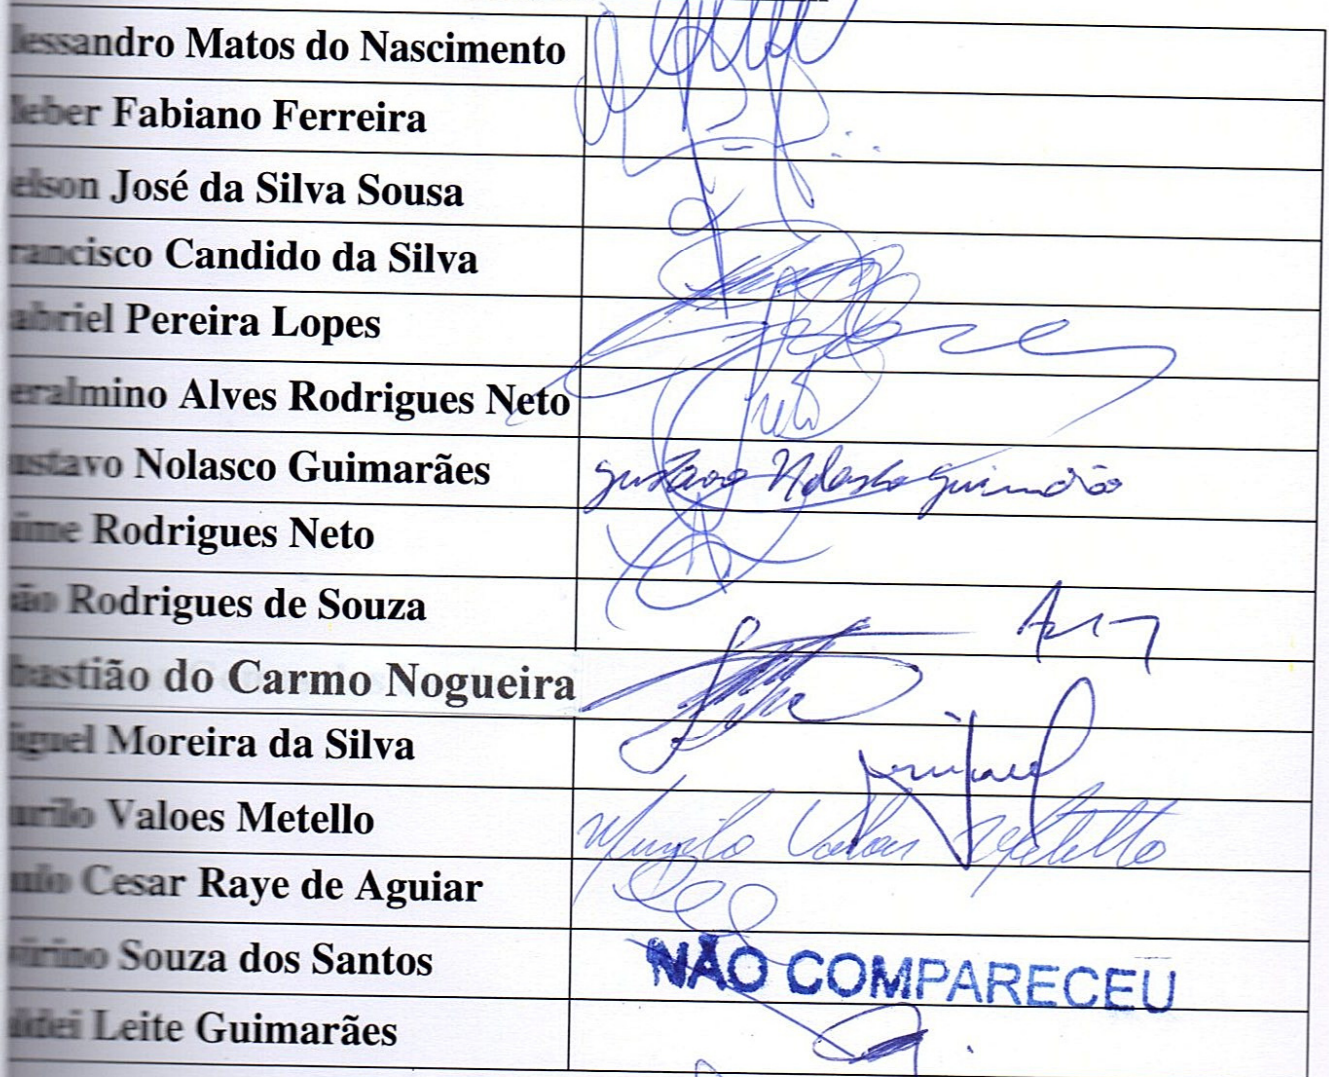 lessandro Matos do Nascimento
leber Fabiano Ferreira
elson José da Silva Sousa
rancisco Candido da Silva
abriel Pereira Lopes
eralmino Alves Rodrigues Neto
Neto
ustavo Nolasco Guimarães
Gustavo Nolasco Guimarães
ime Rodrigues Neto
ão Rodrigues de Souza
bastião do Carmo Nogueira
iguel Moreira da Silva
urilo Valoes Metello
Murilo Valoes Metello
ulo Cesar Raye de Aguiar
irino Souza dos Santos
NÃO COMPARECEU
aldei Leite Guimarães